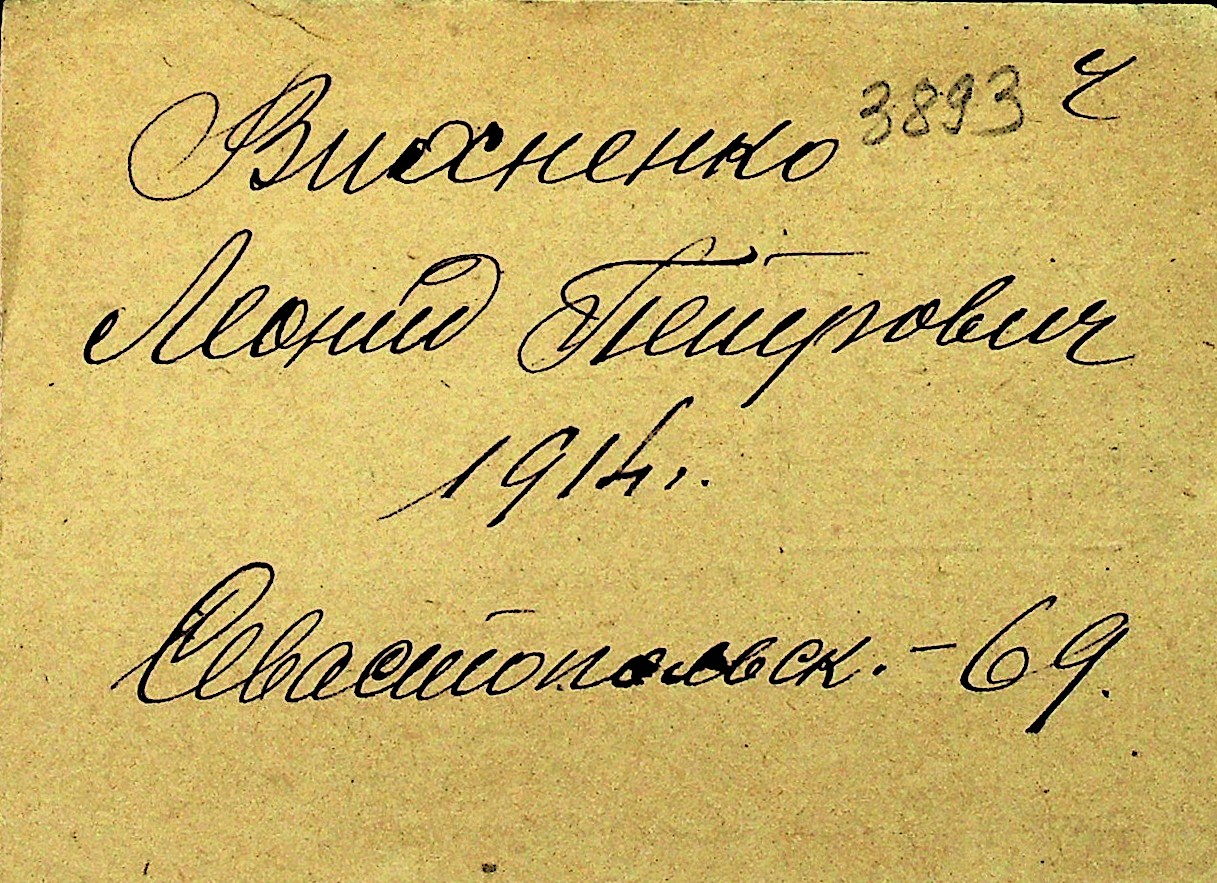 Вихненко 3893 Ч
Леонид Петрович
1914г.
Севастопольск. - 69.